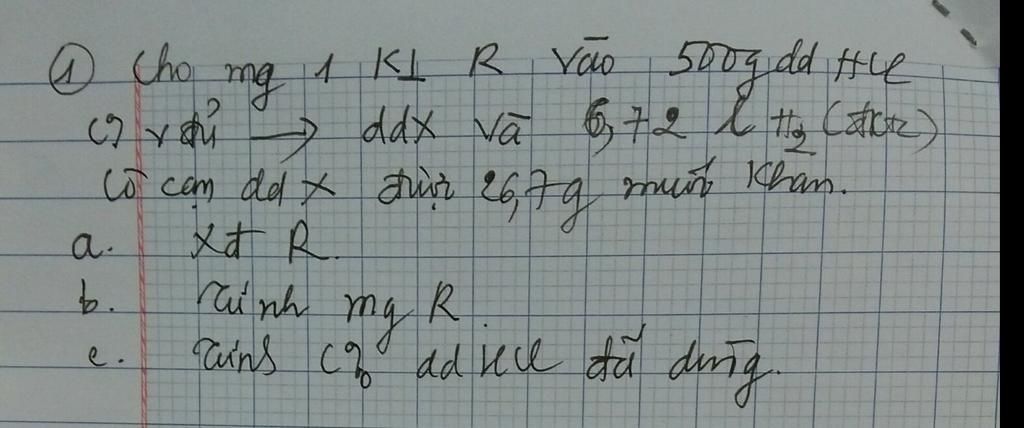 ① Cho mg 1 KL R vào 500g dd HCl
C% vđủ → ddX và 6,72 l H₂ (đktc)
Cô cạn dd X được 26,7g muối khan.
a. Xđ R.
b. Tính mg R.
c. Tính C% dd HCl đã dùng.